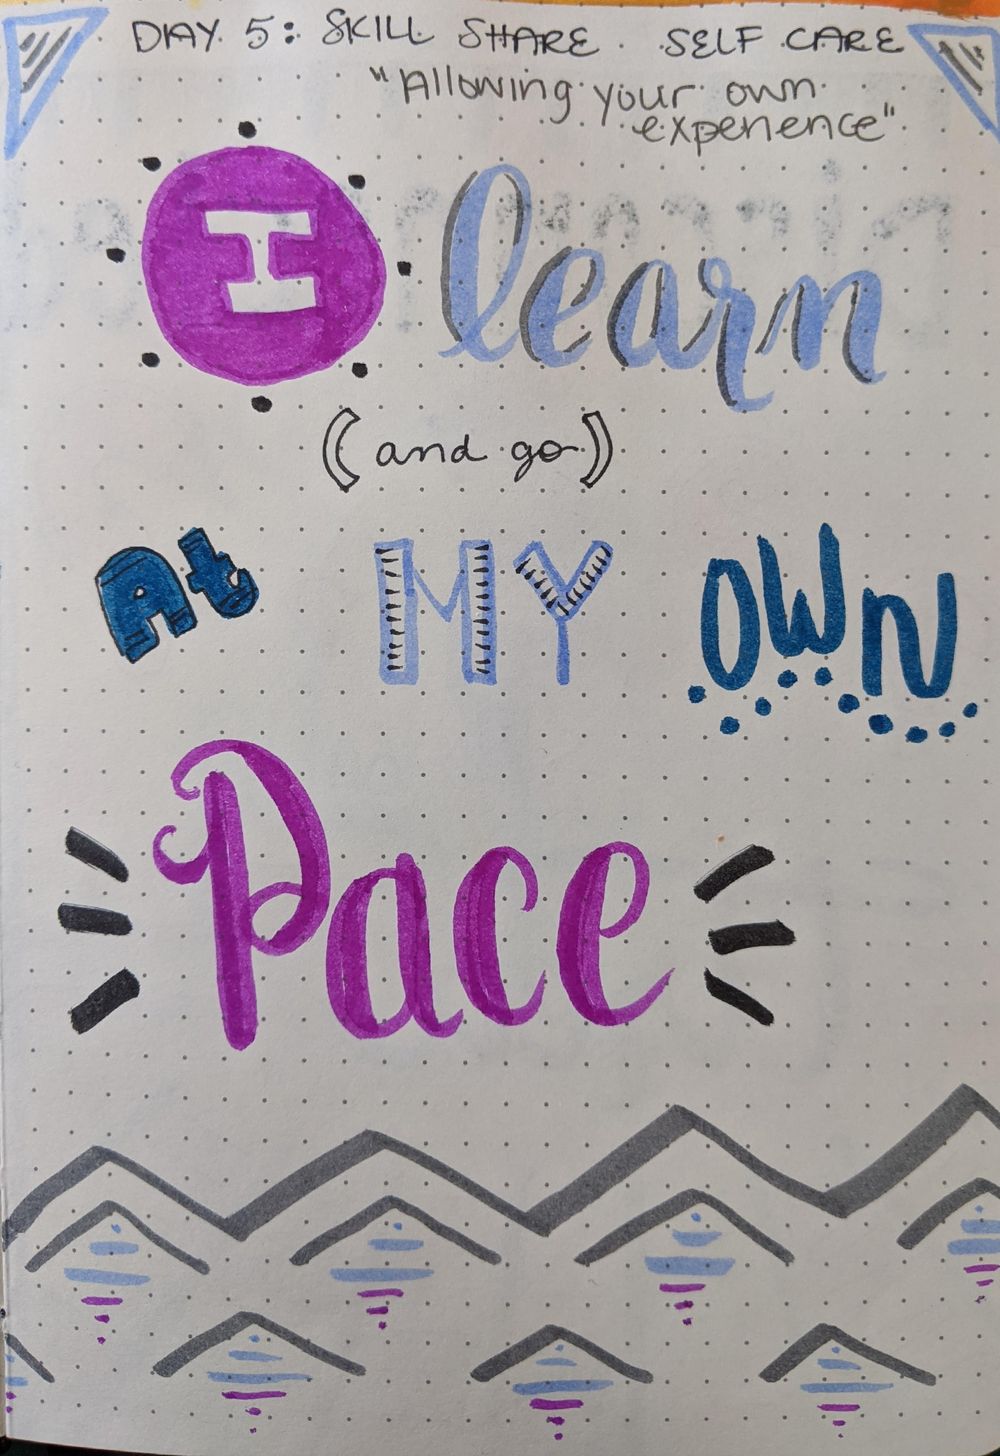 DAY 5: SKILL SHARE SELF CARE
"Allowing your own
experience"
I learn
(and go)
At MY OWN
Pace